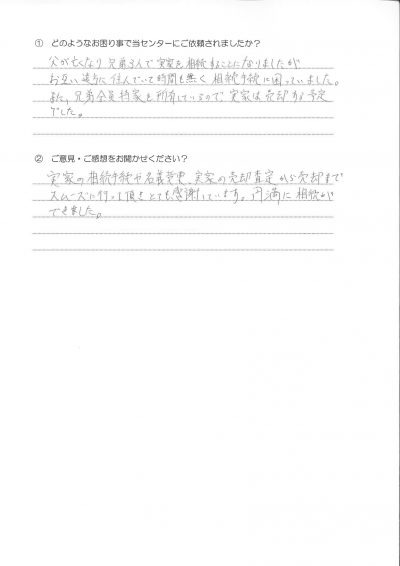 ① どのようなお困り事で当センターにご依頼されましたか？
父が亡くなり 兄弟3人で実家を相続することになりましたが
お互い遠方に住んでいて時間も無く 相続手続に困っていました。
また、兄弟全員持家を所有しているので、実家は売却する予定
でした。
② ご意見・ご感想をお聞かせください？
実家の相続手続や名義変更、実家の売却査定から売却まで
スムーズに行って頂きとても感謝しています。円満に相続が
できました。